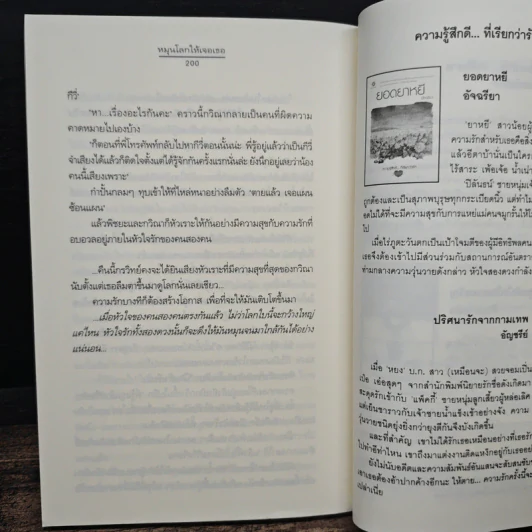 หมุนโลกให้เจอเธอ
200
กีวี่
"หา...เรื่องอะไรกันคะ" คราวนี้กวิณากลายเป็นคนที่ผิดความ
คาดหมายไปเองบ้าง
"ก็ตอนที่พี่โทรศัพท์กลับไปหากีวี่ตอนนั้นน่ะ พี่รู้อยู่แล้วว่าเป็นกีวี่
จำเสียงได้แล้วก็ติดใจตั้งแต่ได้รู้จักกันครั้งแรกนั่นล่ะ ยังนึกอยู่เลยว่าน้อง
คนนี้เสียงเพราะ"
กำปั้นกลมๆ ทุบเข้าให้ที่ไหล่หนาอย่างลืมตัว "ตายแล้ว เจอแผน
ซ้อนแผน"
แล้วพิชยะและกวิณาก็หัวเราะให้กันอย่างมีความสุขกับความรักที่
อบอวลอยู่ภายในหัวใจรักของคนสองคน
...คืนนี้กรวิทย์คงจะได้ยินเสียงหัวเราะที่มีความสุขที่สุดของกวิณา
นับตั้งแต่เธอลืมตาขึ้นมาดูโลกนั่นเลยเชียว...
ความรักบางทีก็ต้องสร้างโอกาส เพื่อที่จะให้มันเติบโตขึ้นมา
...เมื่อหัวใจของคนสองคนตรงกันแล้ว ไม่ว่าโลกใบนี้จะกว้างใหญ่
แค่ไหน หัวใจรักทั้งสองดวงนั้นก็จะดึงให้มันหมุนจนมาใกล้กันได้อย่าง
แน่นอน...
ความรู้สึกดี... ที่เรียกว่ารั
ยอดยาหยี
ยอดยาหยี
อัจฉรียา
'ยาหยี' สาวน้อยผู้
ความรักสำหรับเธอคือสิ่ง
แล้วอีตาบ้านั่นเป็นใคร
ไร้สาระ เพ้อเจ้อ น้ำเน่า
'ปีสันธน์' ชายหนุ่มเจ้
ถูกต้องและเป็นสุภาพบุรุษทุกกระเบียดนิ้ว แต่ทำไม
อดไม่ได้ที่จะมีความสุขกับการแหย่แม่คนจมูกรั้นให้
ไป
เมื่อไร่ภูตะวันตกเป็นเป้าโจมตีของผู้มีอิทธิพล
เธอจึงต้องเข้าไปมีส่วนร่วมกับสถานการณ์อันตรา
ท่ามกลางความวุ่นวายดังกล่าว หัวใจสองดวงกำลัง
ปริศนารักจากกามเทพ
อัญชรีย์
เมื่อ 'หยง' บ.ก. สาว (เหมือนจะ) สวยจอมเป็น
เบ๊อ เอ๋อสุดๆ จากสำนักพิมพ์นิยายรักชื่อดังเกิดมา
สะดุดรักเข้ากับ 'แพ็คกี้' ชายหนุ่มลูกเสี้ยวผู้หล่อเลิศ
แต่เย็นชาราวกับเจ้าชายน้ำแข็งเข้าอย่างจัง ความ
วุ่นวายชนิดยุ่งยิ่งกว่ายุงตีกันจึงบังเกิดขึ้น
และที่สำคัญ เขาไม่ได้รักเธอเหมือนอย่างที่เธอรัก
ไปทำอีท่าไหน เขาถึงมาแต่งงานติดแหง็กอยู่กับเธออย่
ยังไม่นับอดีตและความสัมพันธ์อันแสนจะสับสนซับ
เขาเธอต้องอ้าปากค้างอีกนะ ให้ตาย... ความรักครั้งนี้จะ
เปล่าเนี่ย